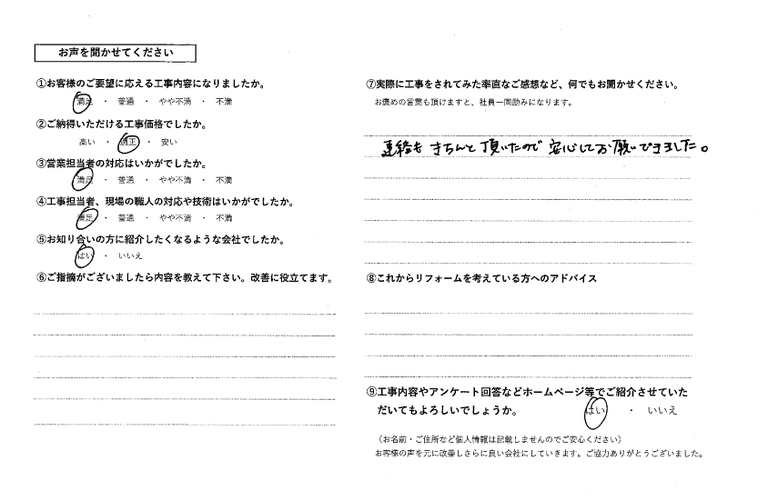 お声を聞かせてください
①お客様のご要望に応える工事内容になりましたか。
満足 ・ 普通 ・ やや不満 ・ 不満
②ご納得いただける工事価格でしたか。
高い ・ 適正 ・ 安い
③営業担当者の対応はいかがでしたか。
満足 ・ 普通 ・ やや不満 ・ 不満
④工事担当者、現場の職人の対応や技術はいかがでしたか。
満足 ・ 普通 ・ やや不満 ・ 不満
⑤お知り合いの方に紹介したくなるような会社でしたか。
はい ・ いいえ
⑥ご指摘がございましたら内容を教えて下さい。改善に役立てます。
⑦実際に工事をされてみた率直なご感想など、何でもお聞かせください。
お褒めの言葉も頂けますと、社員一同励みになります。
連絡も きちんと頂いたので 安心してお願いできました。
⑧これからリフォームを考えている方へのアドバイス
⑨工事内容やアンケート回答などホームページ等でご紹介させていた
だいてもよろしいでしょうか。 はい ・ いいえ
（お名前・ご住所など個人情報は記載しませんのでご安心ください）
お客様の声を元に改善しさらに良い会社にしていきます。ご協力ありがとうございました。